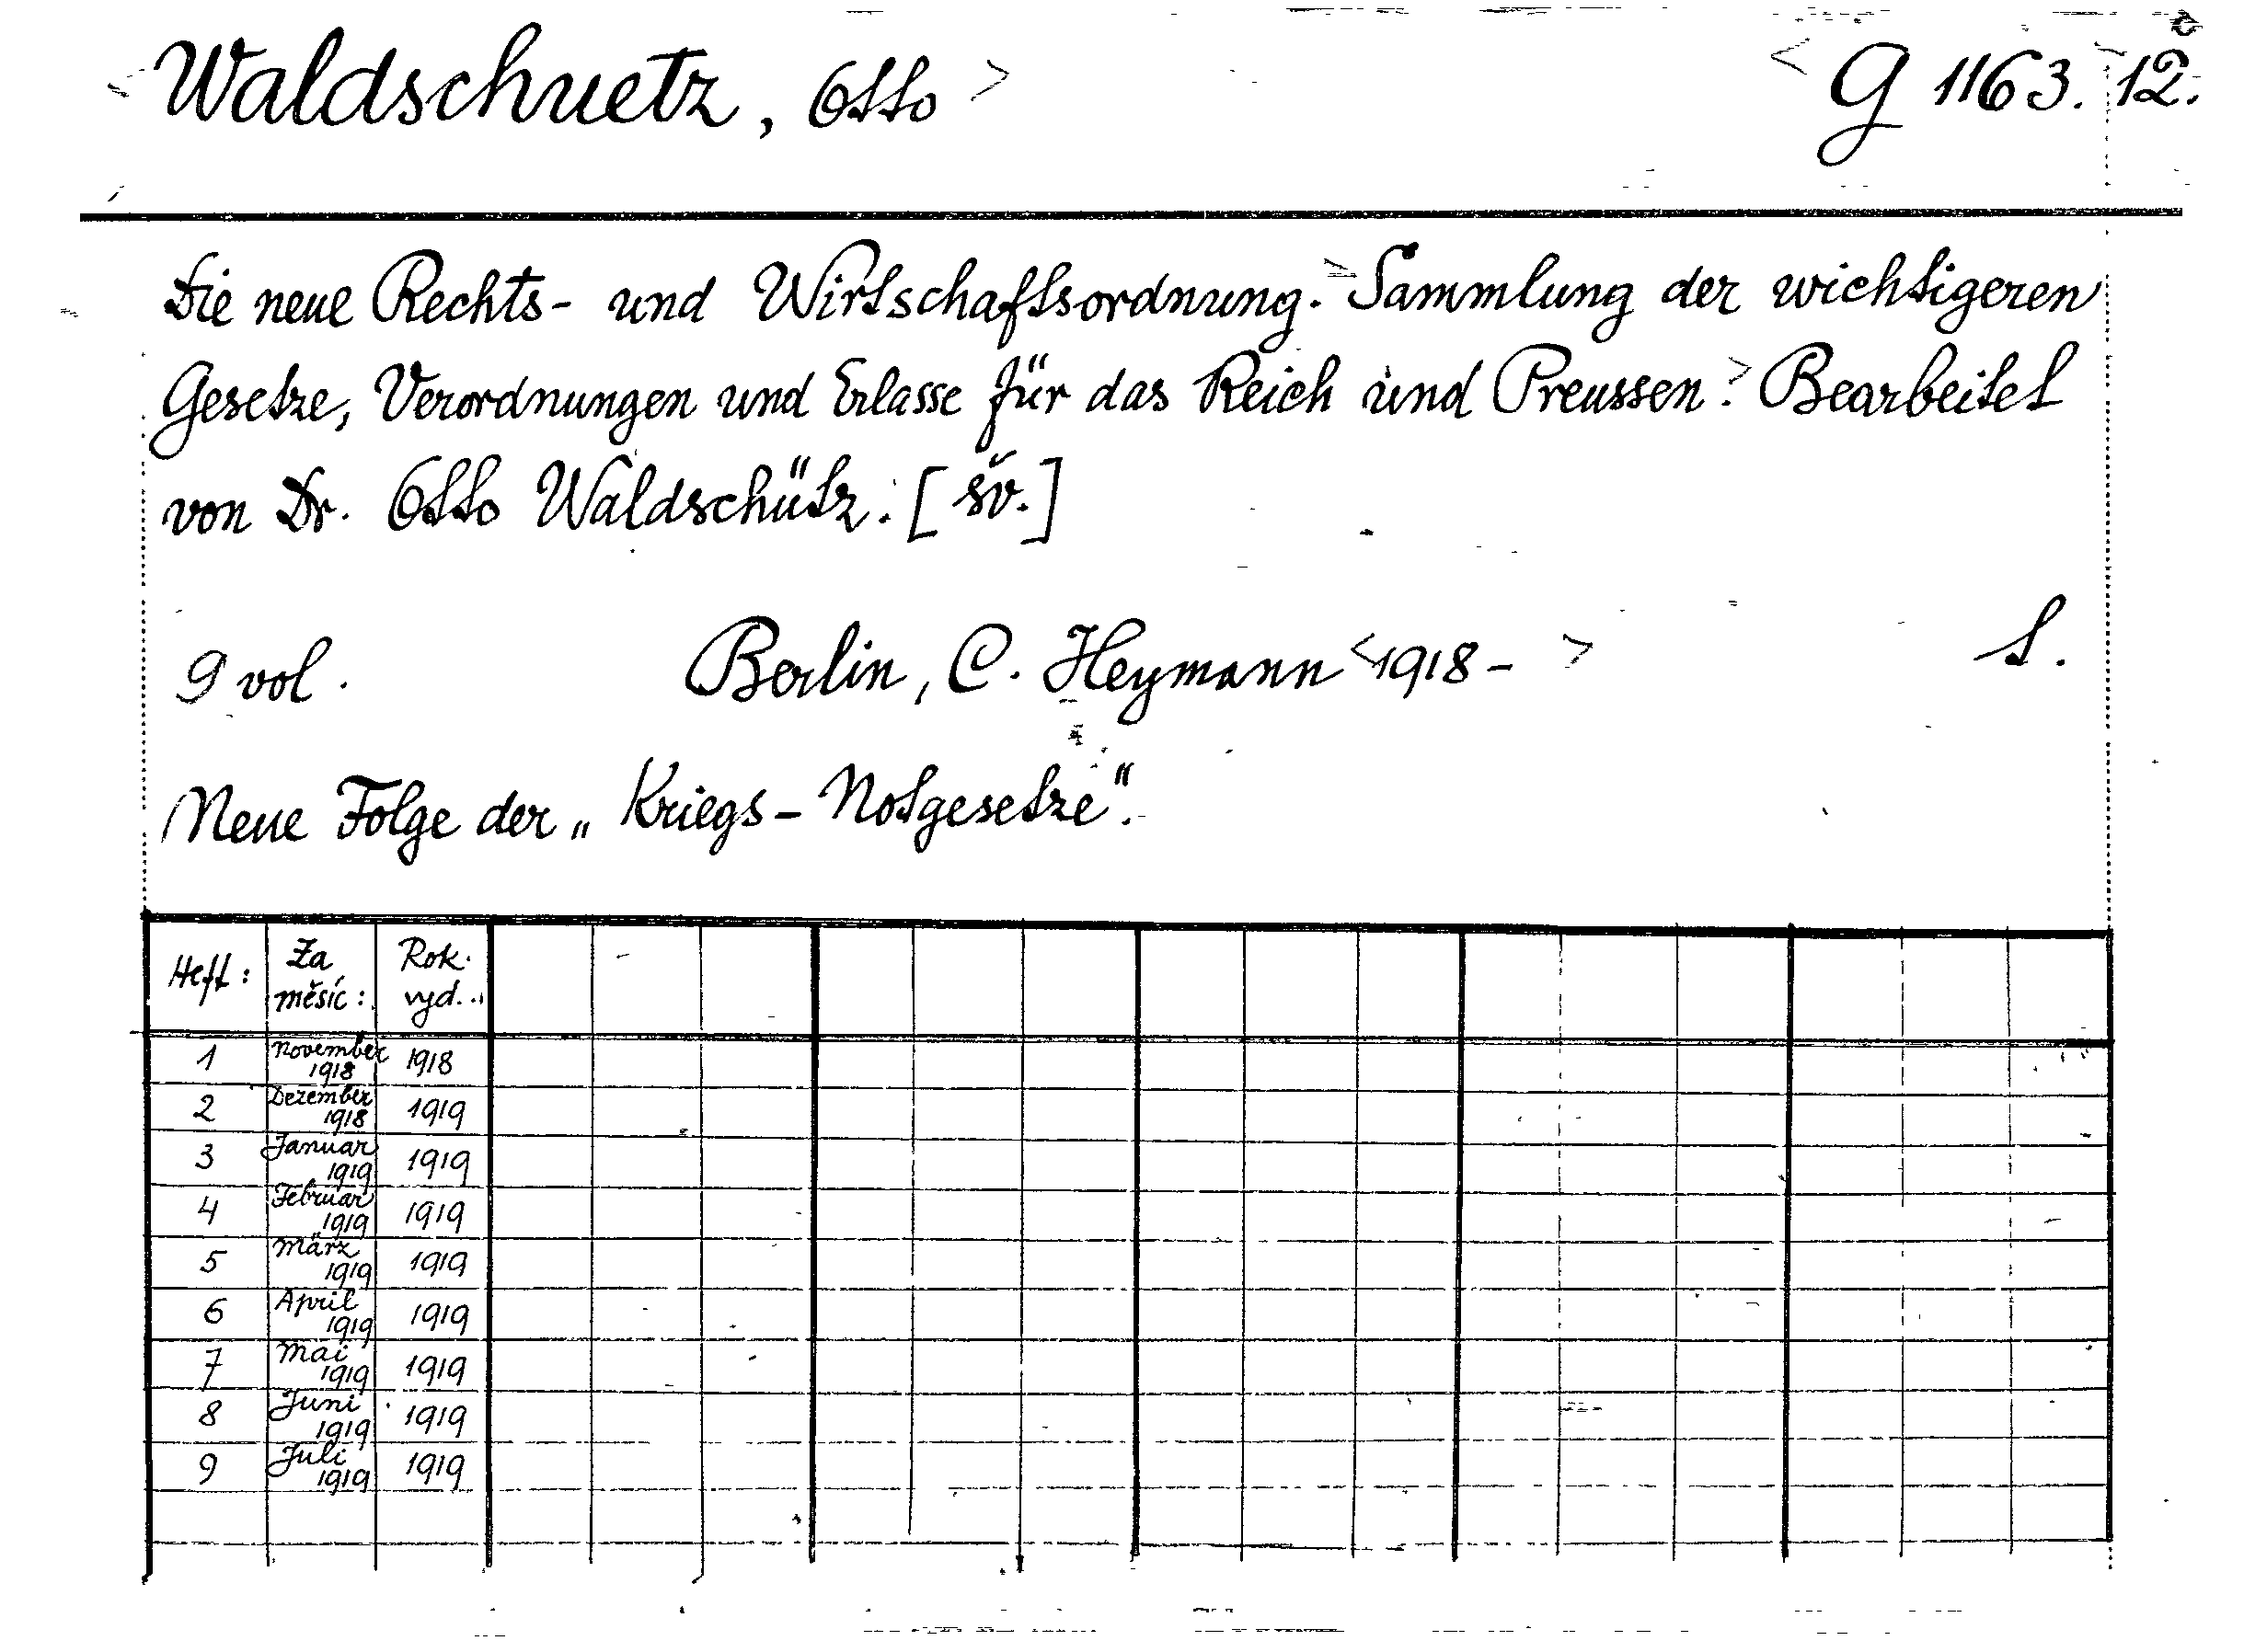 <Waldschuetz, Otto> <G 1163. 12.
Die neue Rechts- und Wirtschaftsordnung.> Sammlung der wichtigeren
Gesetze, Verordnungen und Erlasse für das Reich und Preussen.> Bearbeitet
von Dr. Otto Waldschütz. [sv.]
9 vol. Berlin, C. Heymann <1918- >
Neue Folge der „Kriegs-Notgesetze".
Heft: Za Rok.
měsíc: vyd.
1 November 1918
1918
2 Dezember 1919
1918
3 Januar 1919
1919
4 Februar 1919
1919
5 März 1919
1919
6 April 1919
1919
7 Mai 1919
1919
8 Juni 1919
1919
9 Juli 1919
1919